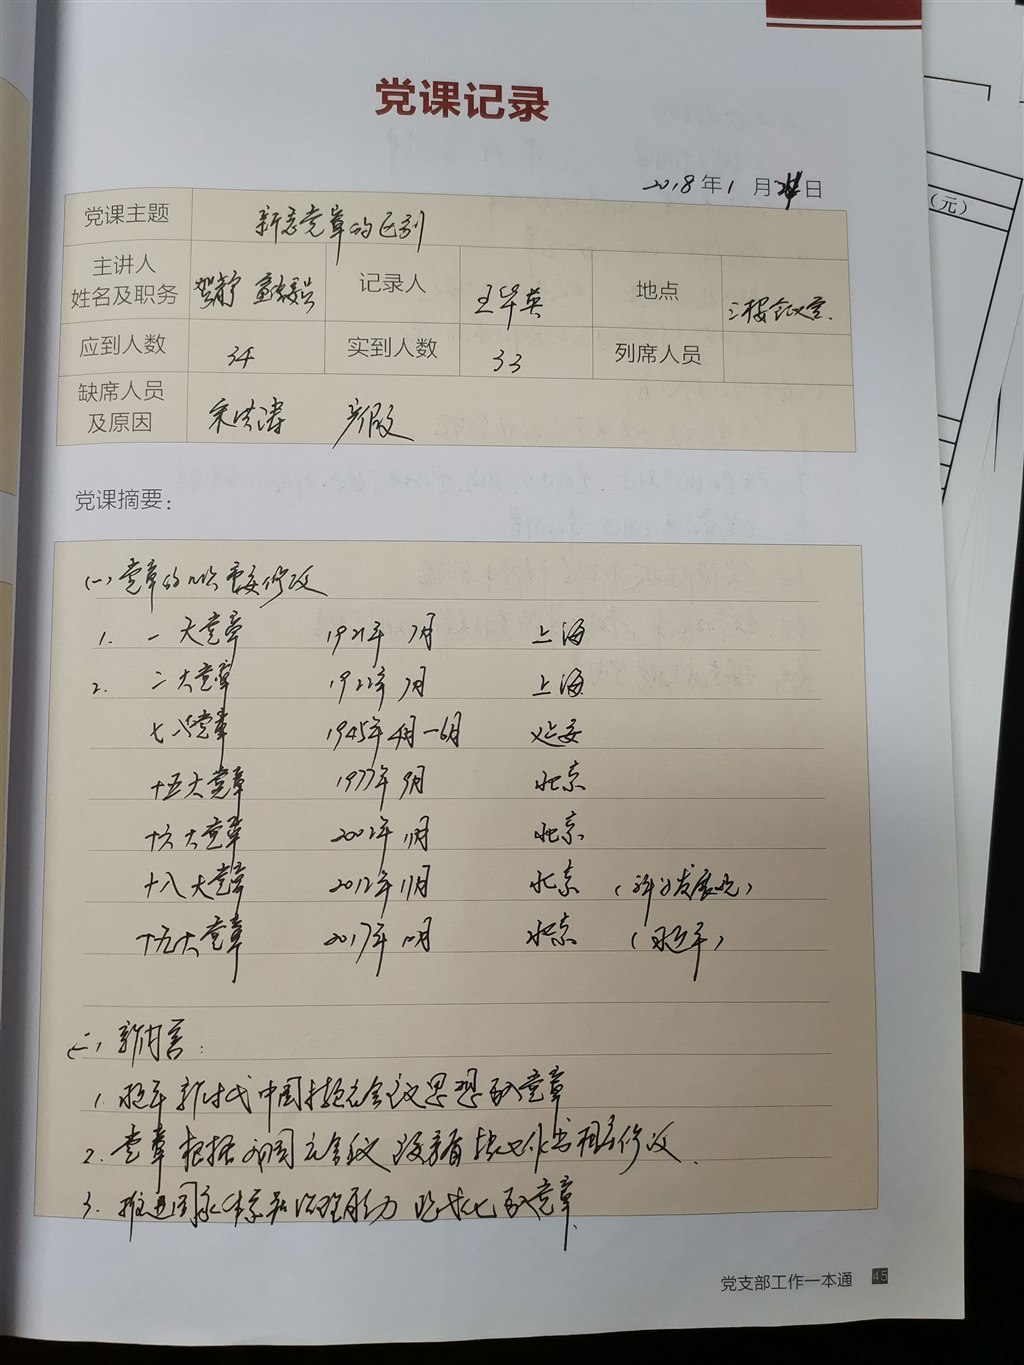 党课记录
2018年1月24日
党课主题 新老党章的区别
主讲人
姓名及职务 贺静 记录人 王华英 地点 三楼会议室
应到人数 34 实到人数 33 列席人员
缺席人员
及原因 朱洪涛 产假
党课摘要:
(一)党章的八次重要修改
1. 一大党章 1921年7月 上海
2. 二大党章 1922年7月 上海
七大党章 1945年4月-6月 延安
十五大党章 1977年9月 北京
十六大党章 2002年11月 北京
十八大党章 2012年11月 北京 (科学发展观)
十九大党章 2017年10月 北京 (习近平)
(二)新内容:
1. 习近平新时代中国特色社会主义思想 党章
2. 党章根据 矛盾 作出相应修改.
3. 推进国家体系和治理能力现代化 党章
党支部工作一本通 45
(元)